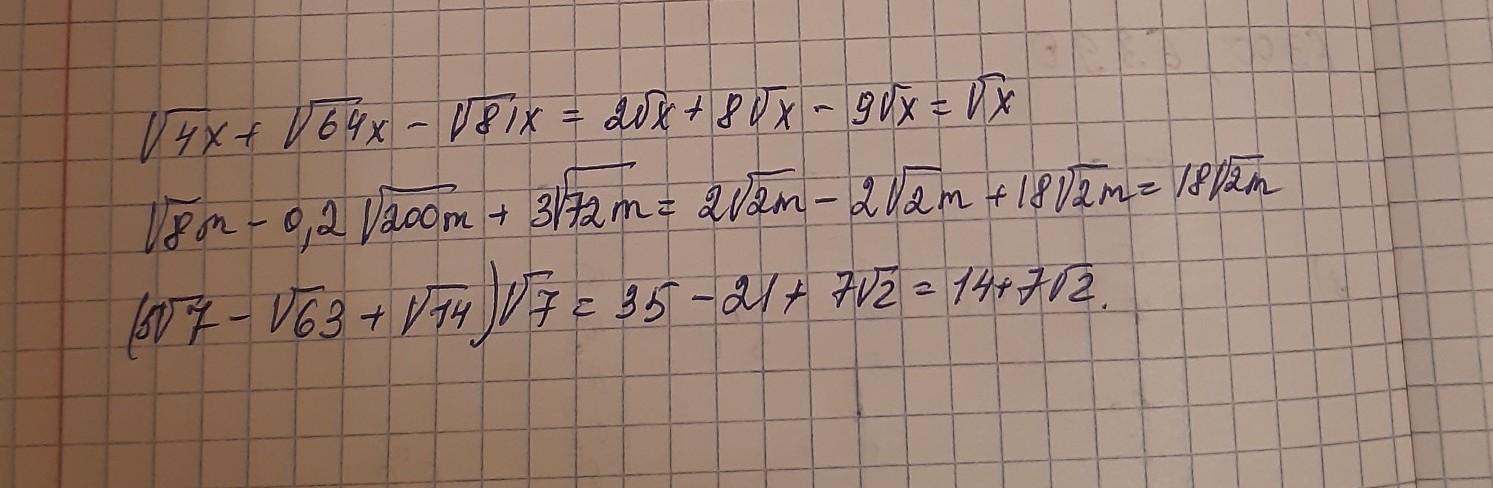 √4x + √64x - √81x = 2√x + 8√x - 9√x = √x
√8m - 0,2√200m + 3√72m = 2√2m - 2√2m + 18√2m = 18√2m
(5√7 - √63 + √14)√7 = 35 - 21 + 7√2 = 14+7√2.